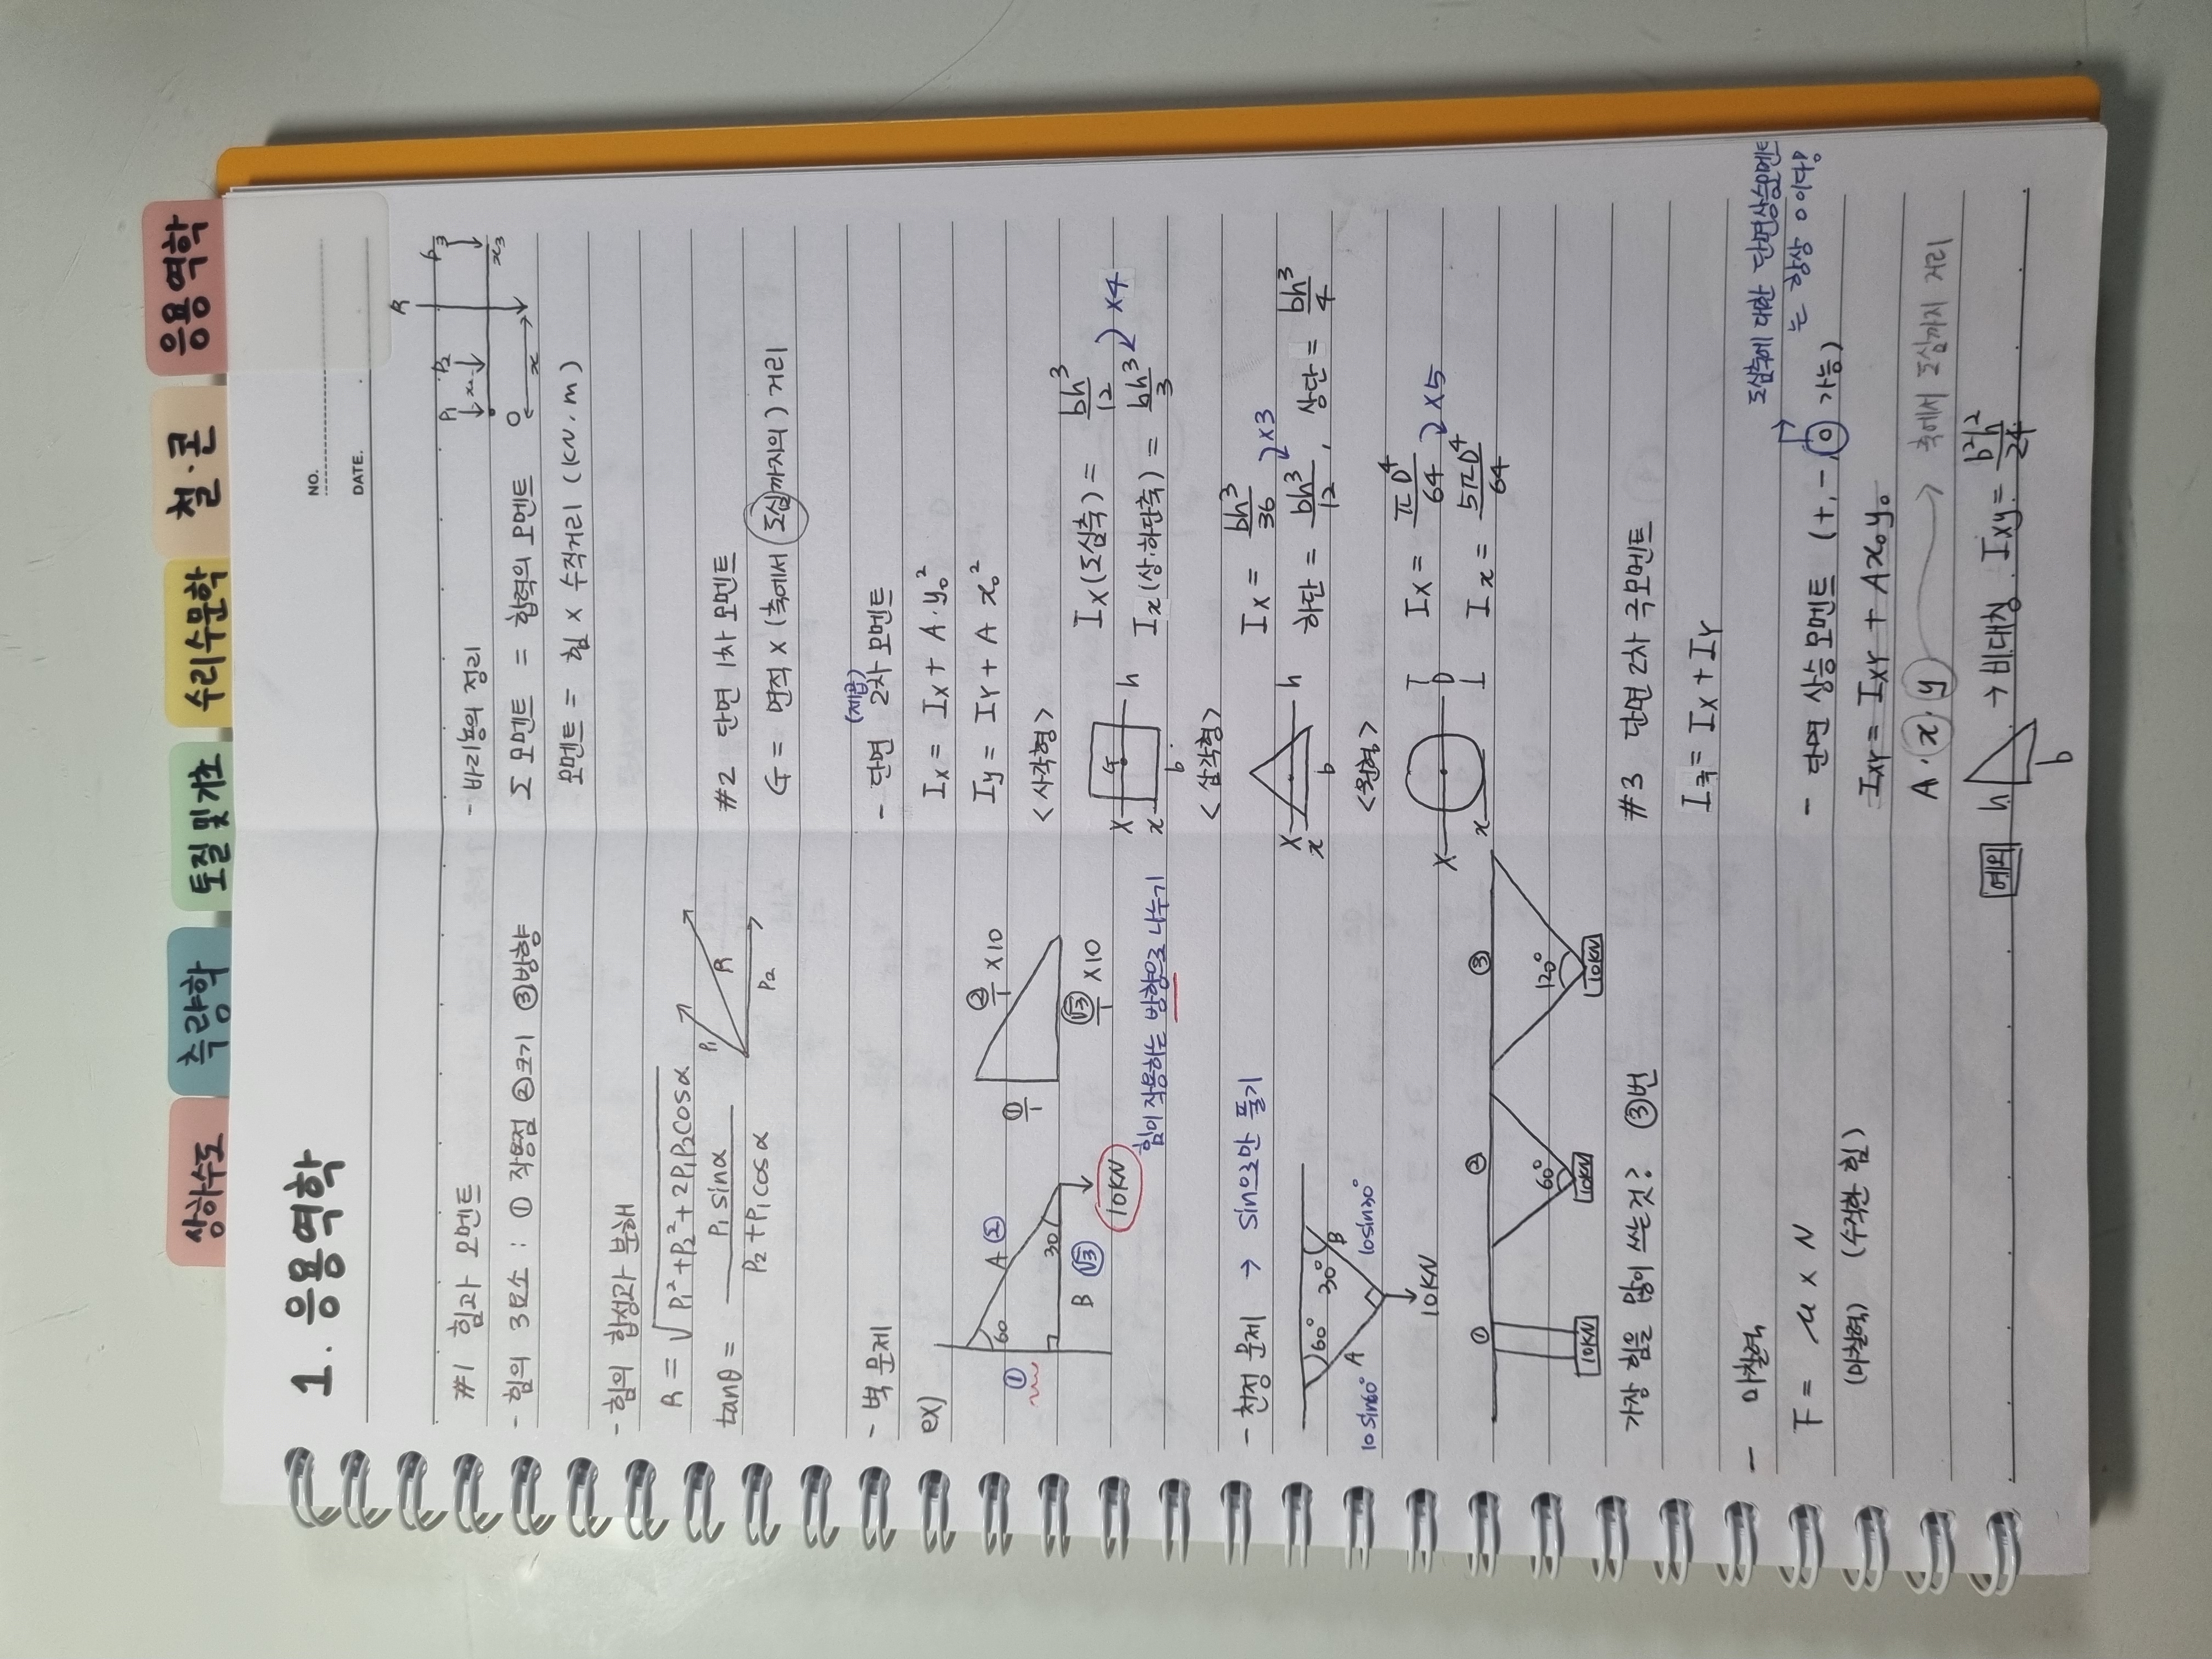 상하수도
측량학
토질 및 기초
수리수문학
철.콘
응용역학
NO.
DATE.
1. 응용역학
#1 힘과 모멘트
- 힘의 3요소 : ① 작용점 ②크기 ③방향
- 힘의 합성과 분해
R = √P₁² + P₂² + 2P₁P₂cosα
tanθ = P₁ sinα / P₂ + P₁ cosα
P₁
R
P₂
- 벽 문제
ex)
①
60
A ②
30
B √3
10KN
① / 1
② / 1 × 10
√3 / 1 × 10
힘이 작용하는 방향으로 나누기
- 천정 문제 → sin으로만 풀기
60° 30°
A B
10 sin60° 10sin30°
10KN
① ② ③
60° 120°
10KN 10KN 10KN
가장 힘을 많이 쓰는것? ③번
- 마찰력
F = μ × N
(마찰력) (수직한 힘)
- 바리뇽의 정리
Σ 모멘트 = 합력의 모멘트
모멘트 = 힘 × 수직거리 (KN.m)
R
P₁ P₂ P₃
x₂
x₃
O x
#2 단면 1차 모멘트
G = 면적 × (축에서 도심까지의) 거리
(제곱)
- 단면 2차 모멘트
Ix = IX + A·y₀²
Iy = IY + A x₀²
<사각형>
X G h
x b
IX (도심축) = bh³/12
Ix (상·하단축) = bh³/3 ×4
<삼각형>
X h
x b
IX = bh³/36 ×3
하단 = bh³/12 , 상단 = bh³/4
<원형>
X D
x
IX = πD⁴/64 ×5
Ix = 5πD⁴/64
#3 단면 2차 극모멘트
I극 = IX + IY
도심축에 대한 단면상승모멘트
는 항상 0이다!
- 단면 상승 모멘트 (+, -, 0 가능)
Ixy = IXY + Ax₀y₀
A·x·y → 축에서 도심까지 거리
예외 h b → 비대칭 Ixy = b²h²/24